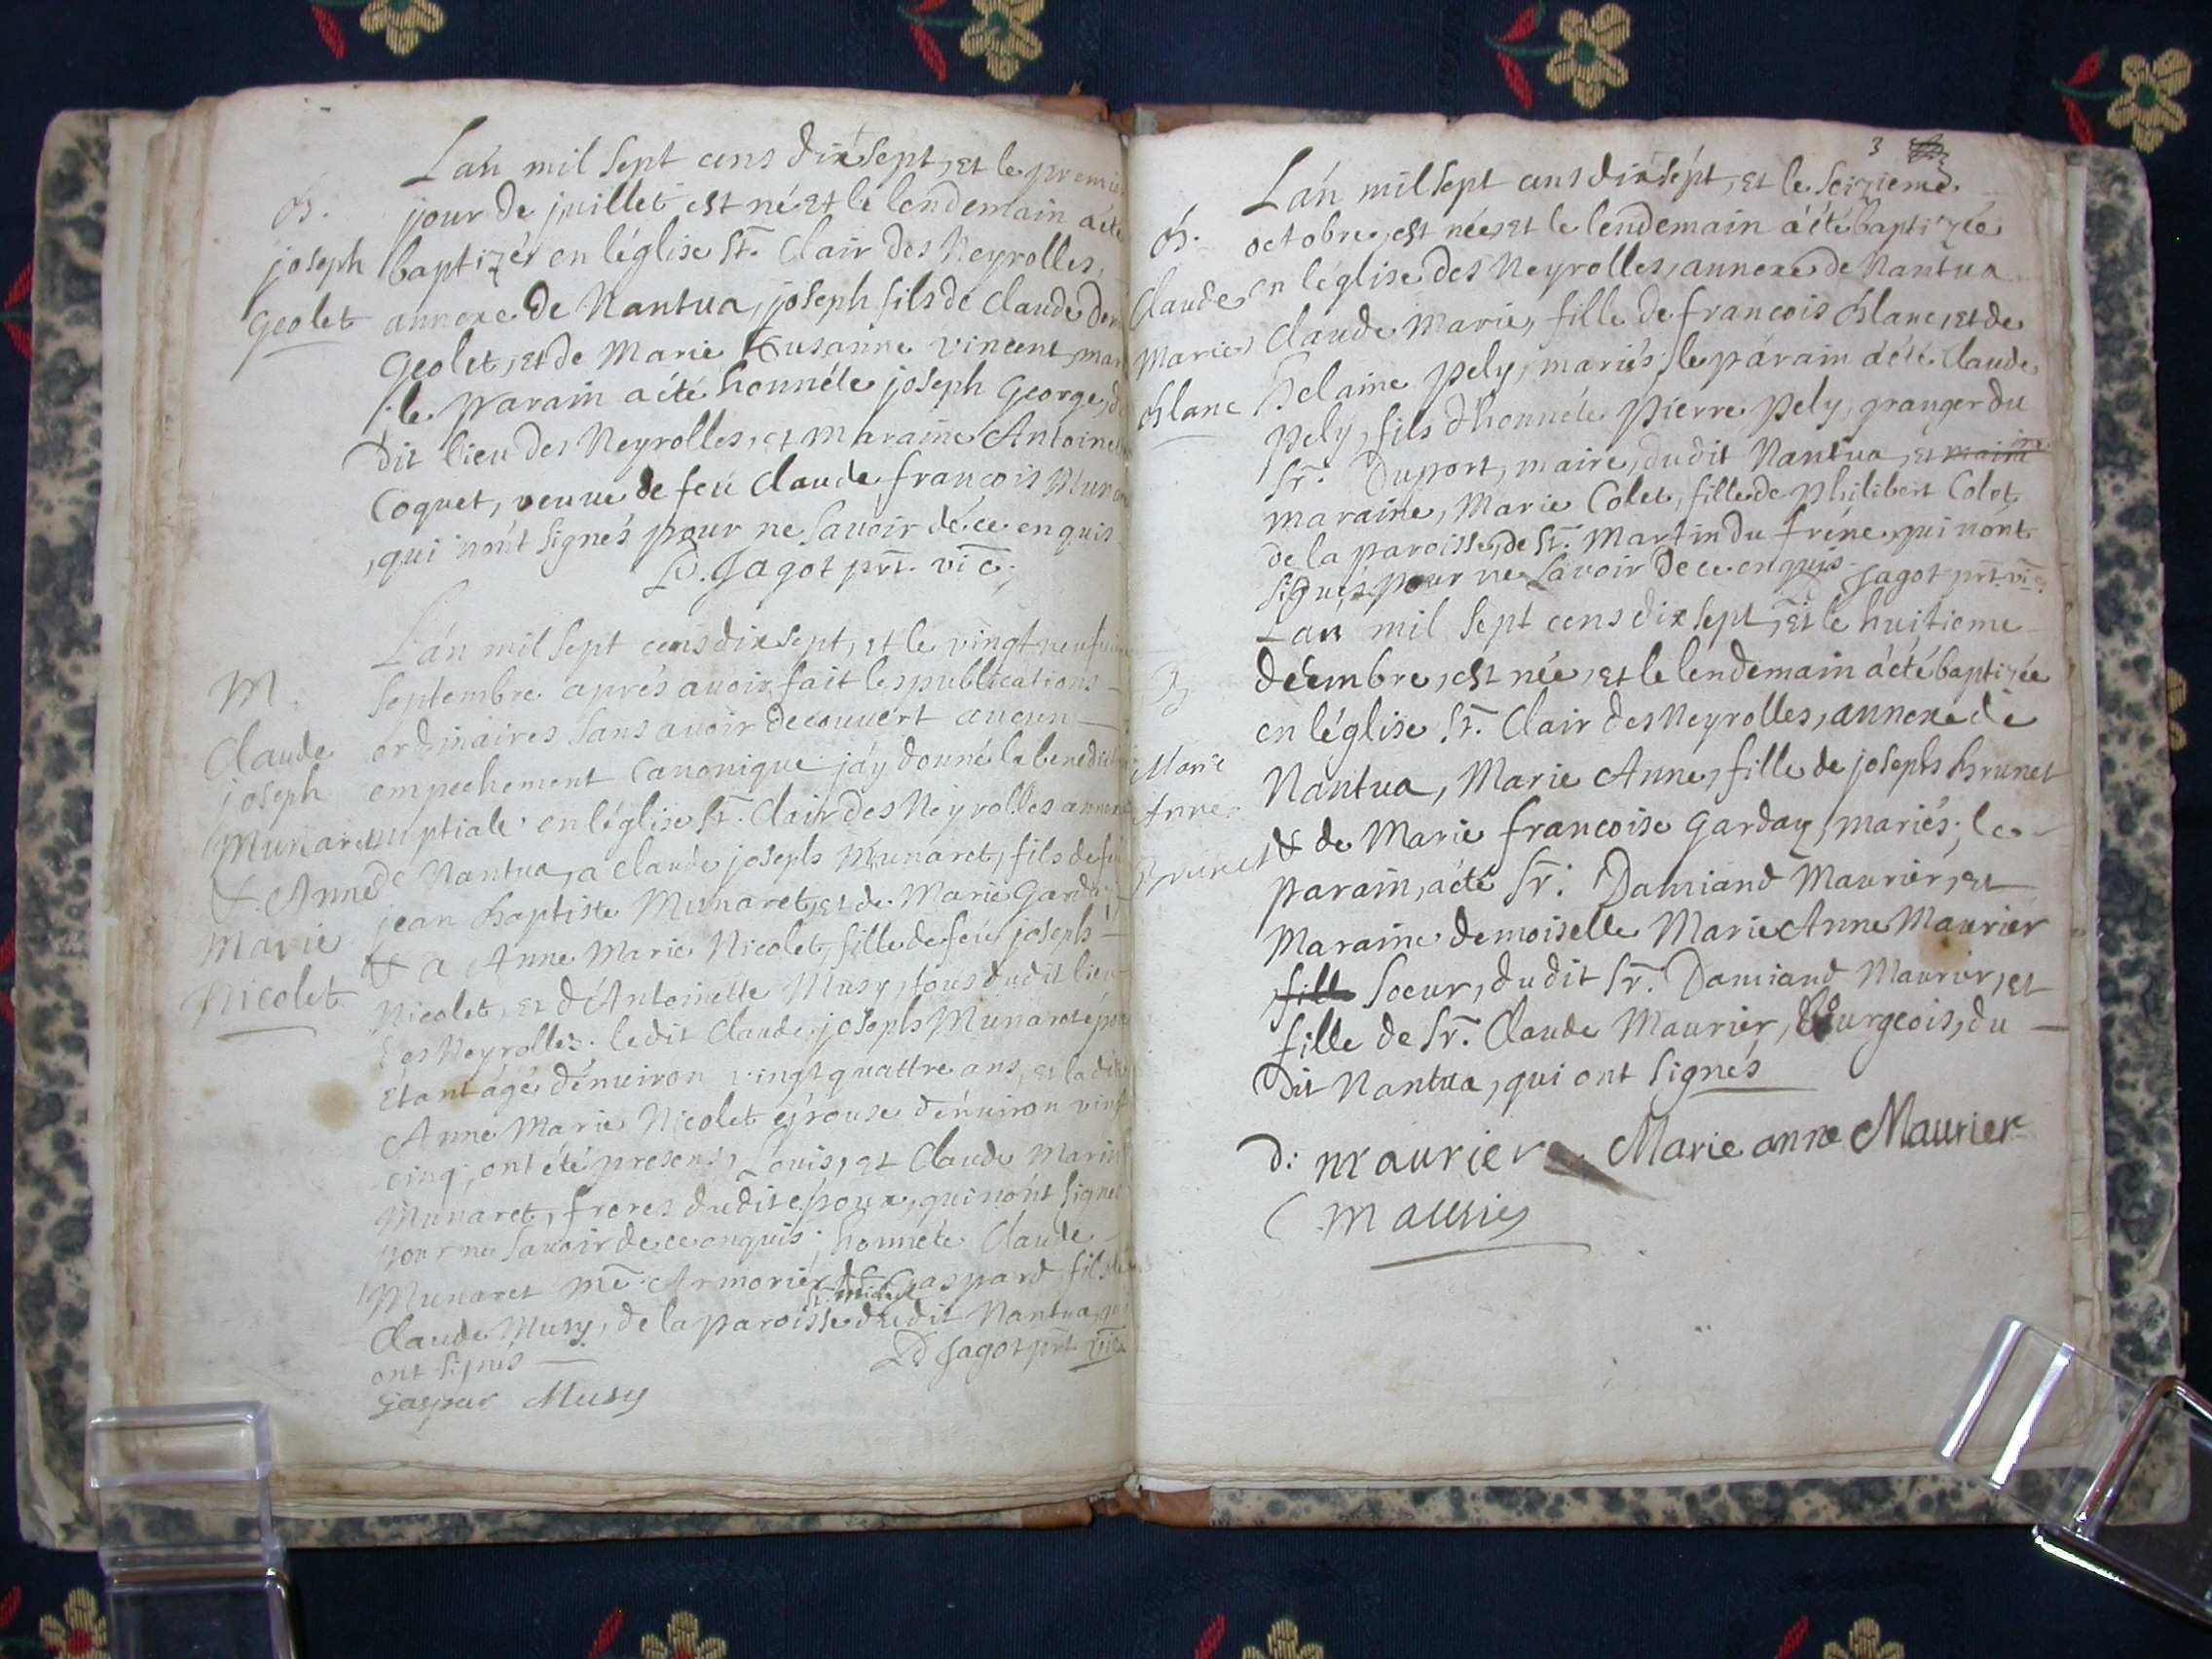 Lán mil Sept cens dix Sept, et le premier
B. jour de juillet est né et le lendemain a été
joseph baptizér en léglise St. Clair des Neyrolles,
geolet annexe de Nantua, joseph fils de Claude
geolet, et de Marie Susanne vincent
; le parain a été honnéte joseph George,
dit lieu des Neyrolles, et maraine Antoinette
Coquet, veuve de feú Claude françois
, qui nónt signés pour ne Savoir dé ce enquis
D. Jagot prt. vic.
Lán mil Sept cens dix Sept, et le vingt neuf
M. Septembre aprés avoir fait les publications
Claude ordinaires Sans avoir decouvért aucun
joseph empechement Canonique jáy donné la benediction
Munaret nuptiale en léglise St. Clair des Neyrolles annexe
& Anne de Nantua, a claude joseph Munaret, fils de feú
Marie jean baptiste Munaret, et de Marie Garday
Nicolet & a Anne Marie Nicolet, fille de feú joseph
Nicolet, et dÁntoinette Musy, tous dudit lieu
des Neyrolles. ledit Claude joseph Munaret
étant ágé dénuiron vingt quattre ans, et ladite
Anne Marie Nicolet épouse dénuiron vingt
cinq, ont été presens, Louis, et Claude Marin
Munaret, freres dudit époux, qui nónt signés
pour ne Savoir de ce enquis; honnéte Claude
Munaret me. Armoriér Gaspard, fils de
Claude Musy, de la paroisse dudit Nantua,
ont signés D Jagot prt vic.
Gaspar Musy
3
Lán mil Sept cens dix Sépt, et le Seizieme
B. octobre, est née, et le lendemain a été baptizée
Claude en léglise des Neyrolles, annexe de Nantua
Marie Claude Marie, fille de francois blanc, et de
blanc pely, mariés; le párain a été Claude
pely, fils dhonnéte pierre pely, granger du
Sr. Duport, maire, dudit Nantua, et
maraine, Marie Colet, fille de philibert Colet
de la paroisse, de St. Martin du fréne, qui nont
signés, pour ne Savoir de ce enquis. Jagot prt. vic.
Lan mil Sept cens dix Sept, et le huitieme
B décembre, est née, et le lendemain a été baptizée
en léglise St. Clair des Neyrolles, annexe de
Marie Nantua, Marie Anne, fille de joseph brunet
Anne & de Marie francoise Garday, mariés; le
Brunet parain, a été Sr. Damiand Maurier, et
Maraine demoiselle Marie Anne Maurier
fille Soeur, dudit Sr. Damiand Maurier, et
fille de Sr. Claude Maurier, Bourgeois, du
dit Nantua, qui ont signés
D: maurier Marie anne Maurier
C. maurier